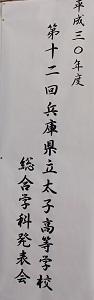 平成三〇年度
第十二回兵庫県立太子高等学校
総合学科発表会